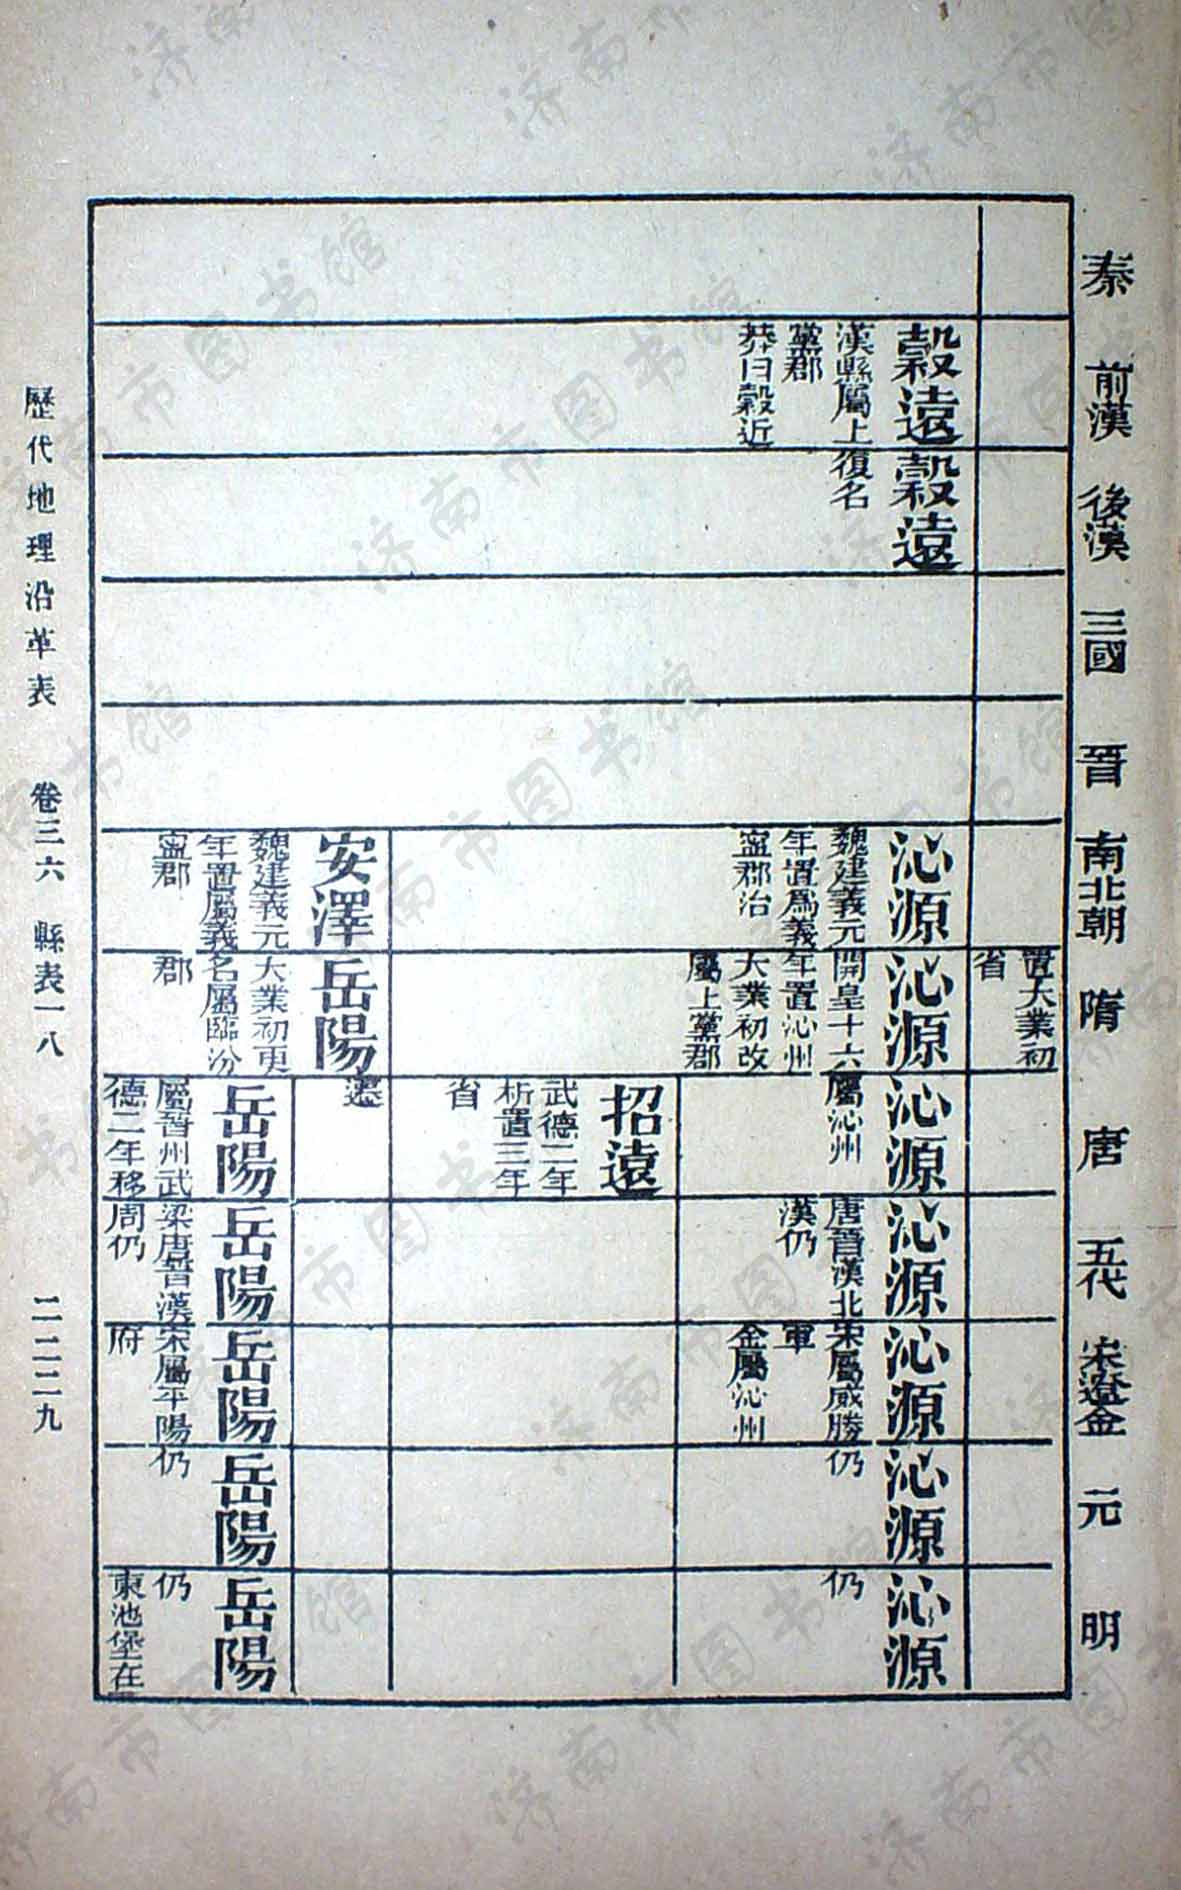 秦
前漢
後漢
三國
晉
南北朝
隋
唐
五代
宋遼金
元
明
置大業初
省
穀遠
漢縣屬上
黨郡
莽曰穀近
穀遠
復名
沁源
魏建義元
年置爲義
寧郡治
沁源
開皇十六
年置沁州
大業初改
屬上黨郡
沁源
屬沁州
沁源
唐晉漢北
漢仍
沁源
宋屬威勝
軍
金屬沁州
沁源
仍
沁源
仍
招遠
武德二年
析置三年
省
安澤
魏建義元
年置屬義
寧郡
岳陽
大業初更
名屬臨汾
郡
岳陽
屬晉州武
德二年移
岳陽
梁唐晉漢
周仍
岳陽
宋屬平陽
府
岳陽
仍
岳陽
仍
東池堡在
歷代地理沿革表 卷三六 縣表一八 二二二九
济南市图书馆